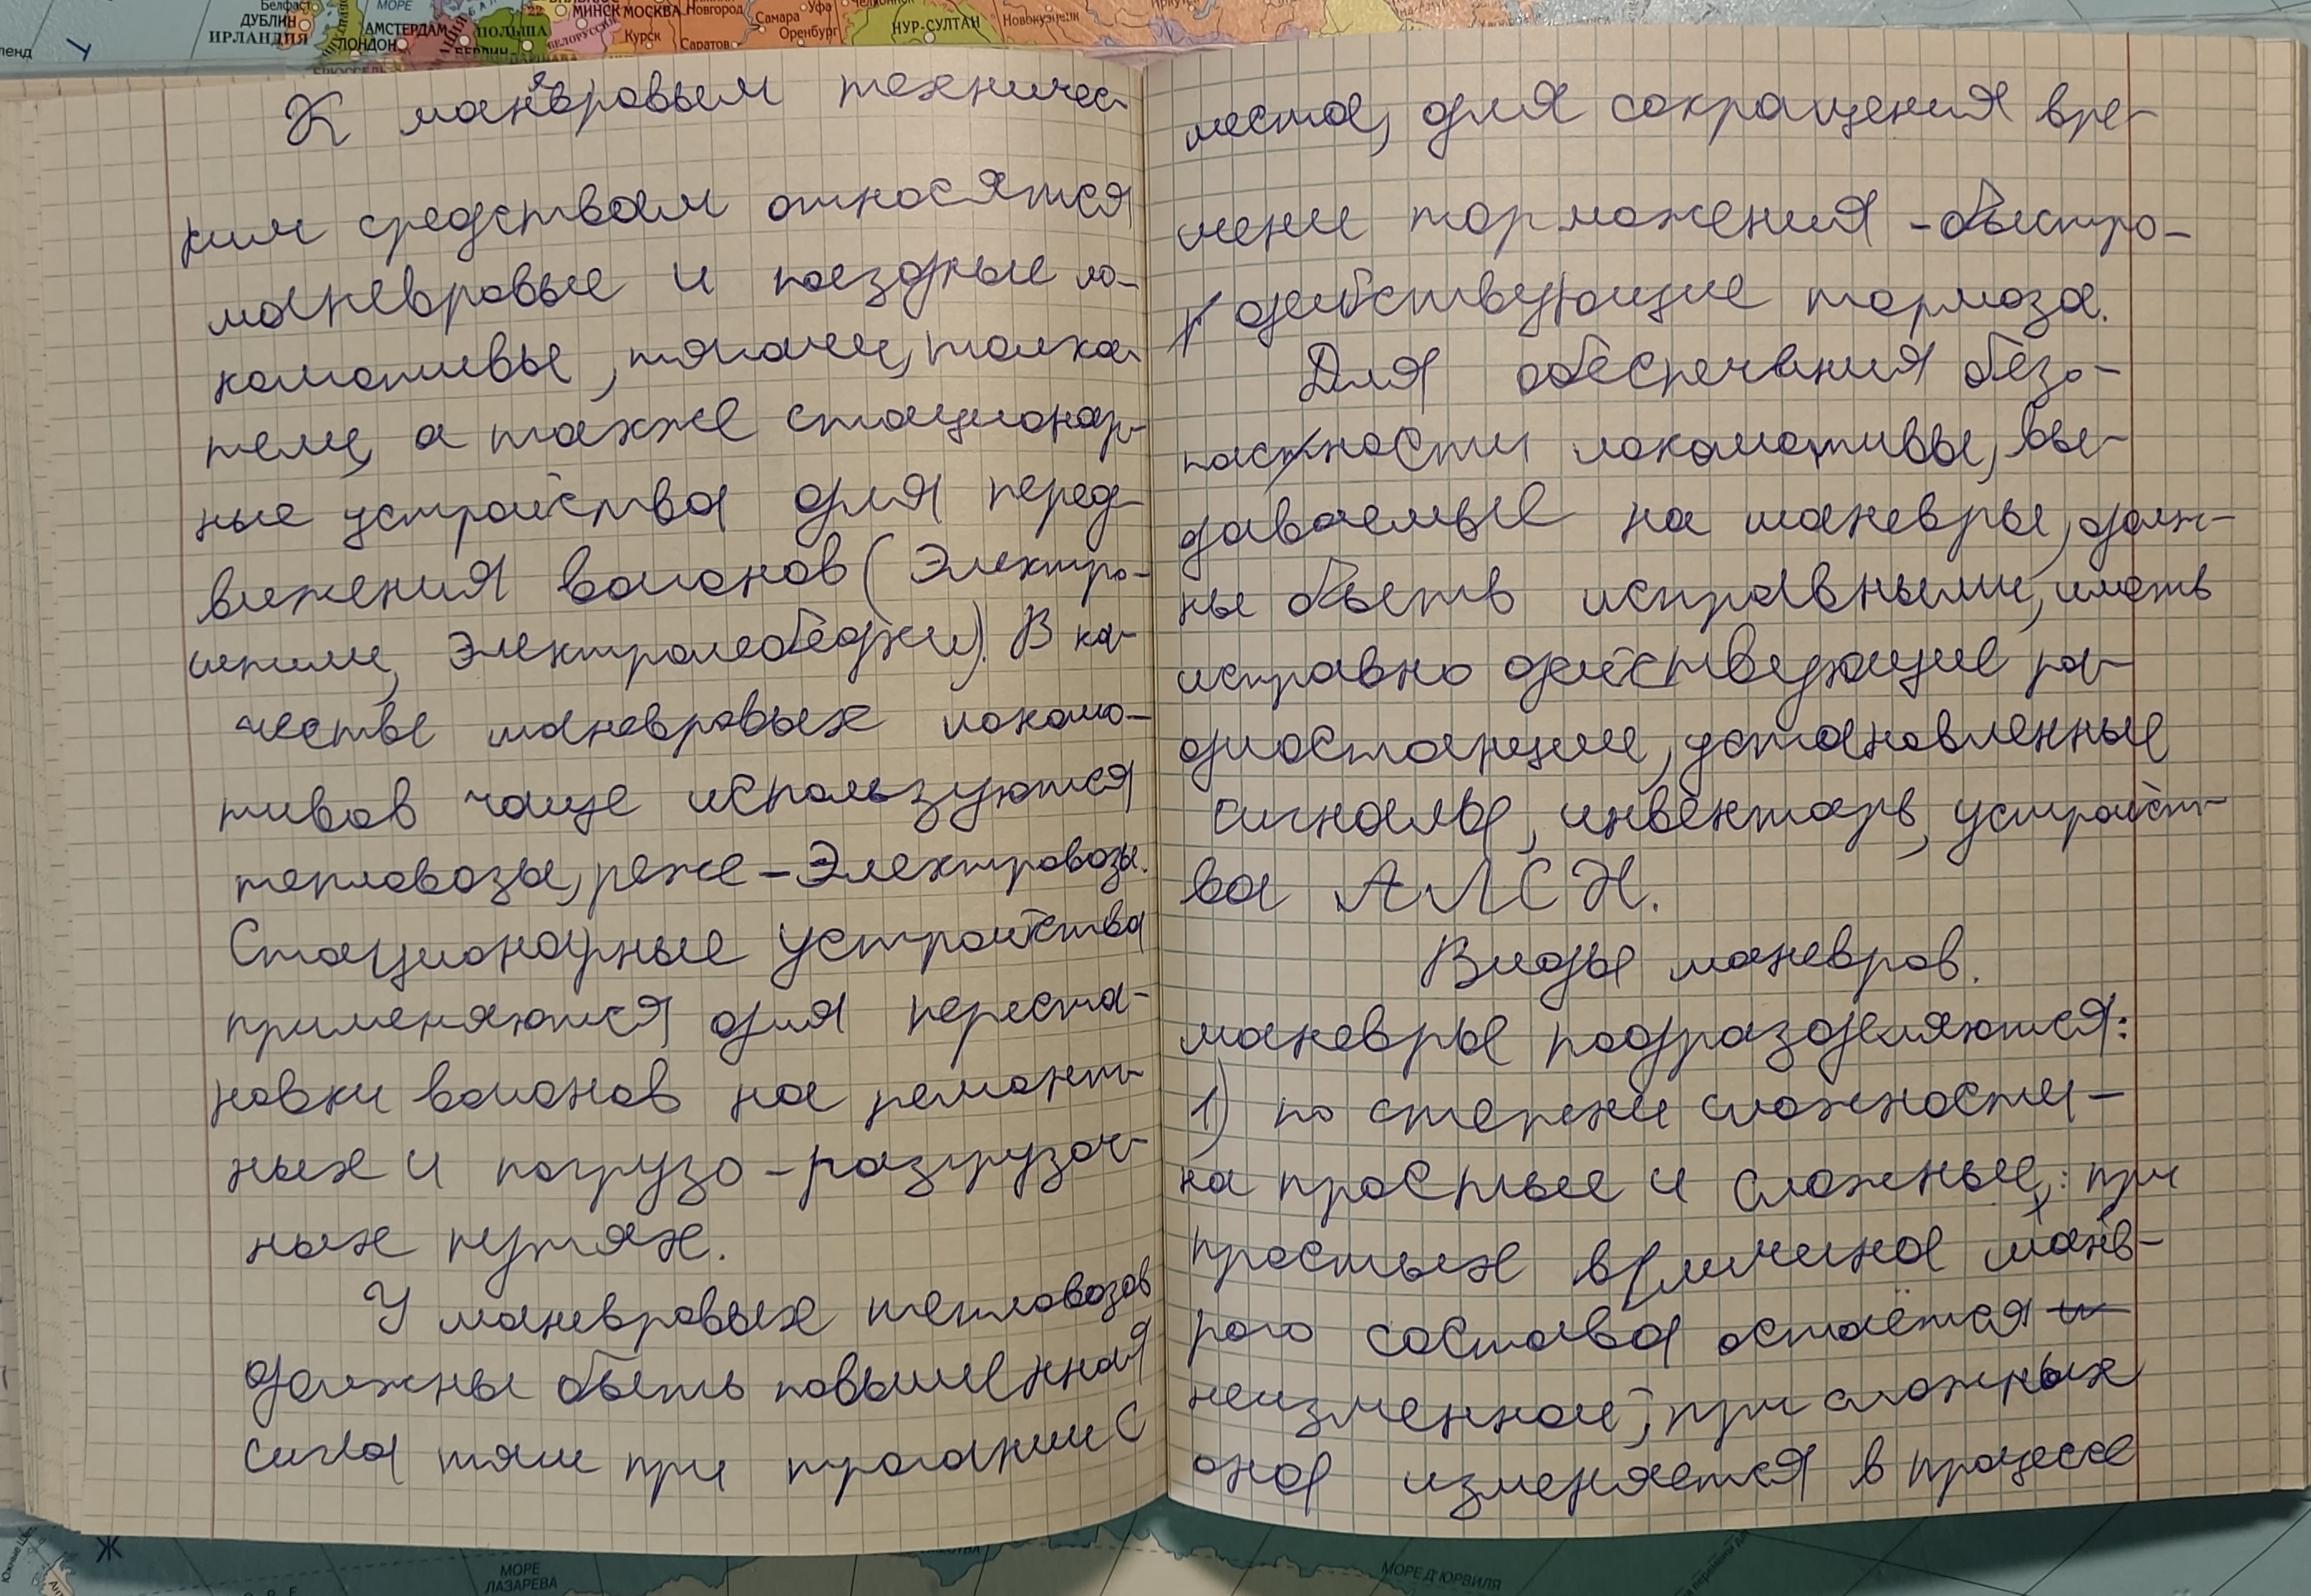 Белфаст
ДУБЛИН
ИРЛАНДИЯ
МОРЕ
АМСТЕРДАМ
ЛОНДОН
БЕРЛИН
ПОЛЬША
БРЮССЕЛЬ
22
МИНСК
БЕЛОРУССИЯ
МОСКВА
Новгород
Курск
Саратов
Самара
Уфа
Оренбург
Челябинск
НУР-СУЛТАН
Новокузнецк
Иркутск
К маневровым техничес-
ким средствам относятся
маневровые и поездные ло-
комотивы, тягачи, толка-
тели, а также стационар-
ные устройства для перед-
вижения вагонов (Электро-
шпили, Электролебёдки). В ка-
честве маневровых локомо-
тивов чаще используются
тепловозы, реже - Электровозы.
Стационарные устройства
применяются для переста-
новки вагонов на ремонт-
ных и погрузо-разгрузоч-
ных путях.
У маневровых тепловозов
должны быть повышенная
сила тяги при трогании с
места, для сокращения вре-
мени торможения - быстро-
действующие тормоза.
Для обеспечения безо-
пастности локомотивы, вы-
даваемые на маневры, долж-
ны быть исправными, иметь
исправно действующие ра-
диостанции, установленные
сигналы, инвентарь, устройст-
ва АЛСН.
Виды маневров.
маневры подразделяются:
1) по степени сложности -
на простые и сложные: при
простых величина манёв-
рого состава остаётся
неизменной, при сложных
она изменяется в процессе
Ж
МОРЕ
ЛАЗАРЕВА
МОРЕ Д'ЮРВИЛЯ